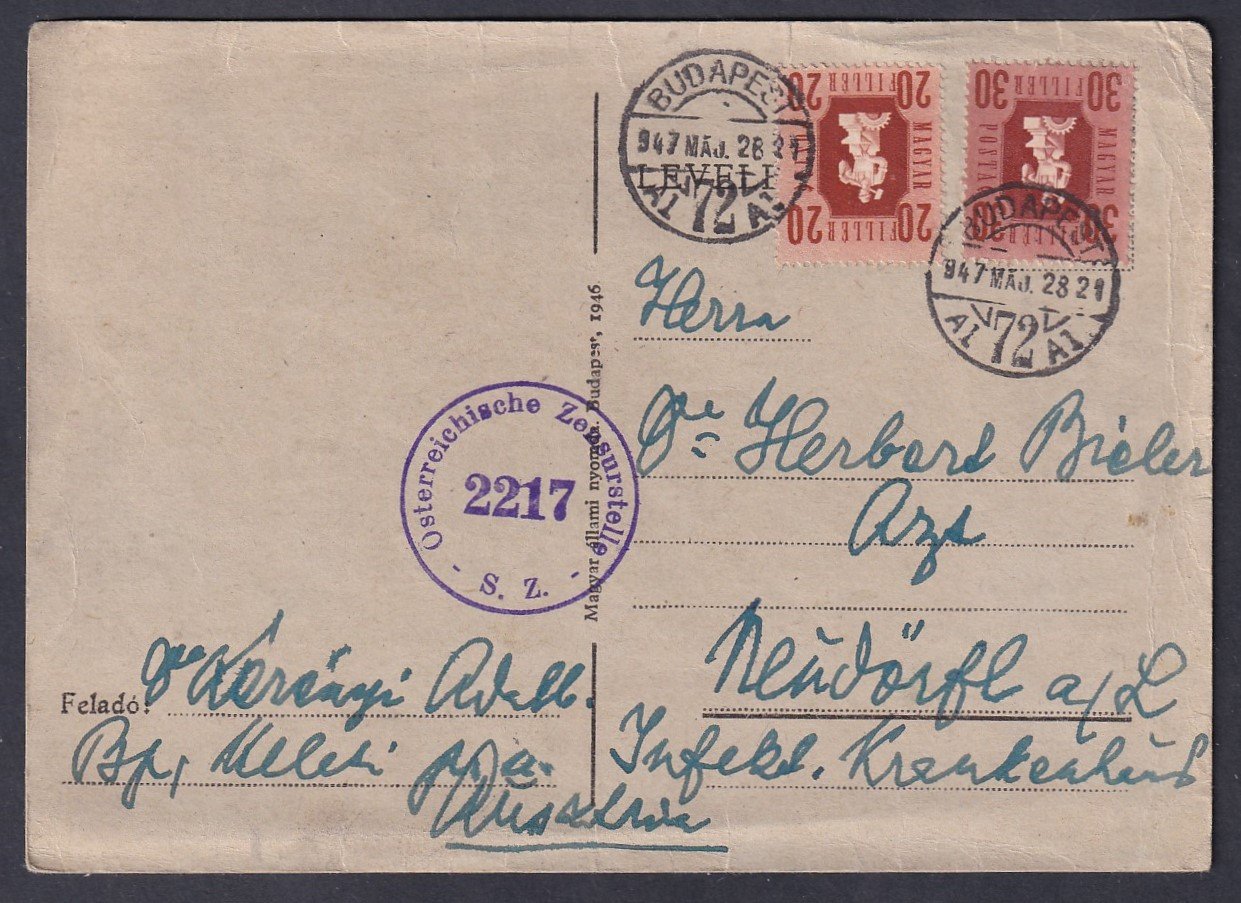 BUDAPEST
947 MÁJ. 28 21
72
LEVELE
20 20
MAGYAR
FILLÉR
20 20
30 FILLÉR 30
MAGYAR
POSTA
30 FILLÉR 30
BUDAPEST
947 MÁJ. 28 21
A1 72 A1
Herrn
Dr Herbert Bieler
Arzt
Neudörfl a/L
Infekt. Krankenhaus
Österreichische Zensurstelle
2217
- S. Z. -
Magyar állami nyomda. Budapest, 1946
Feladó: Dr Lorányi
Bp, Keleti p.u.
Ausztria